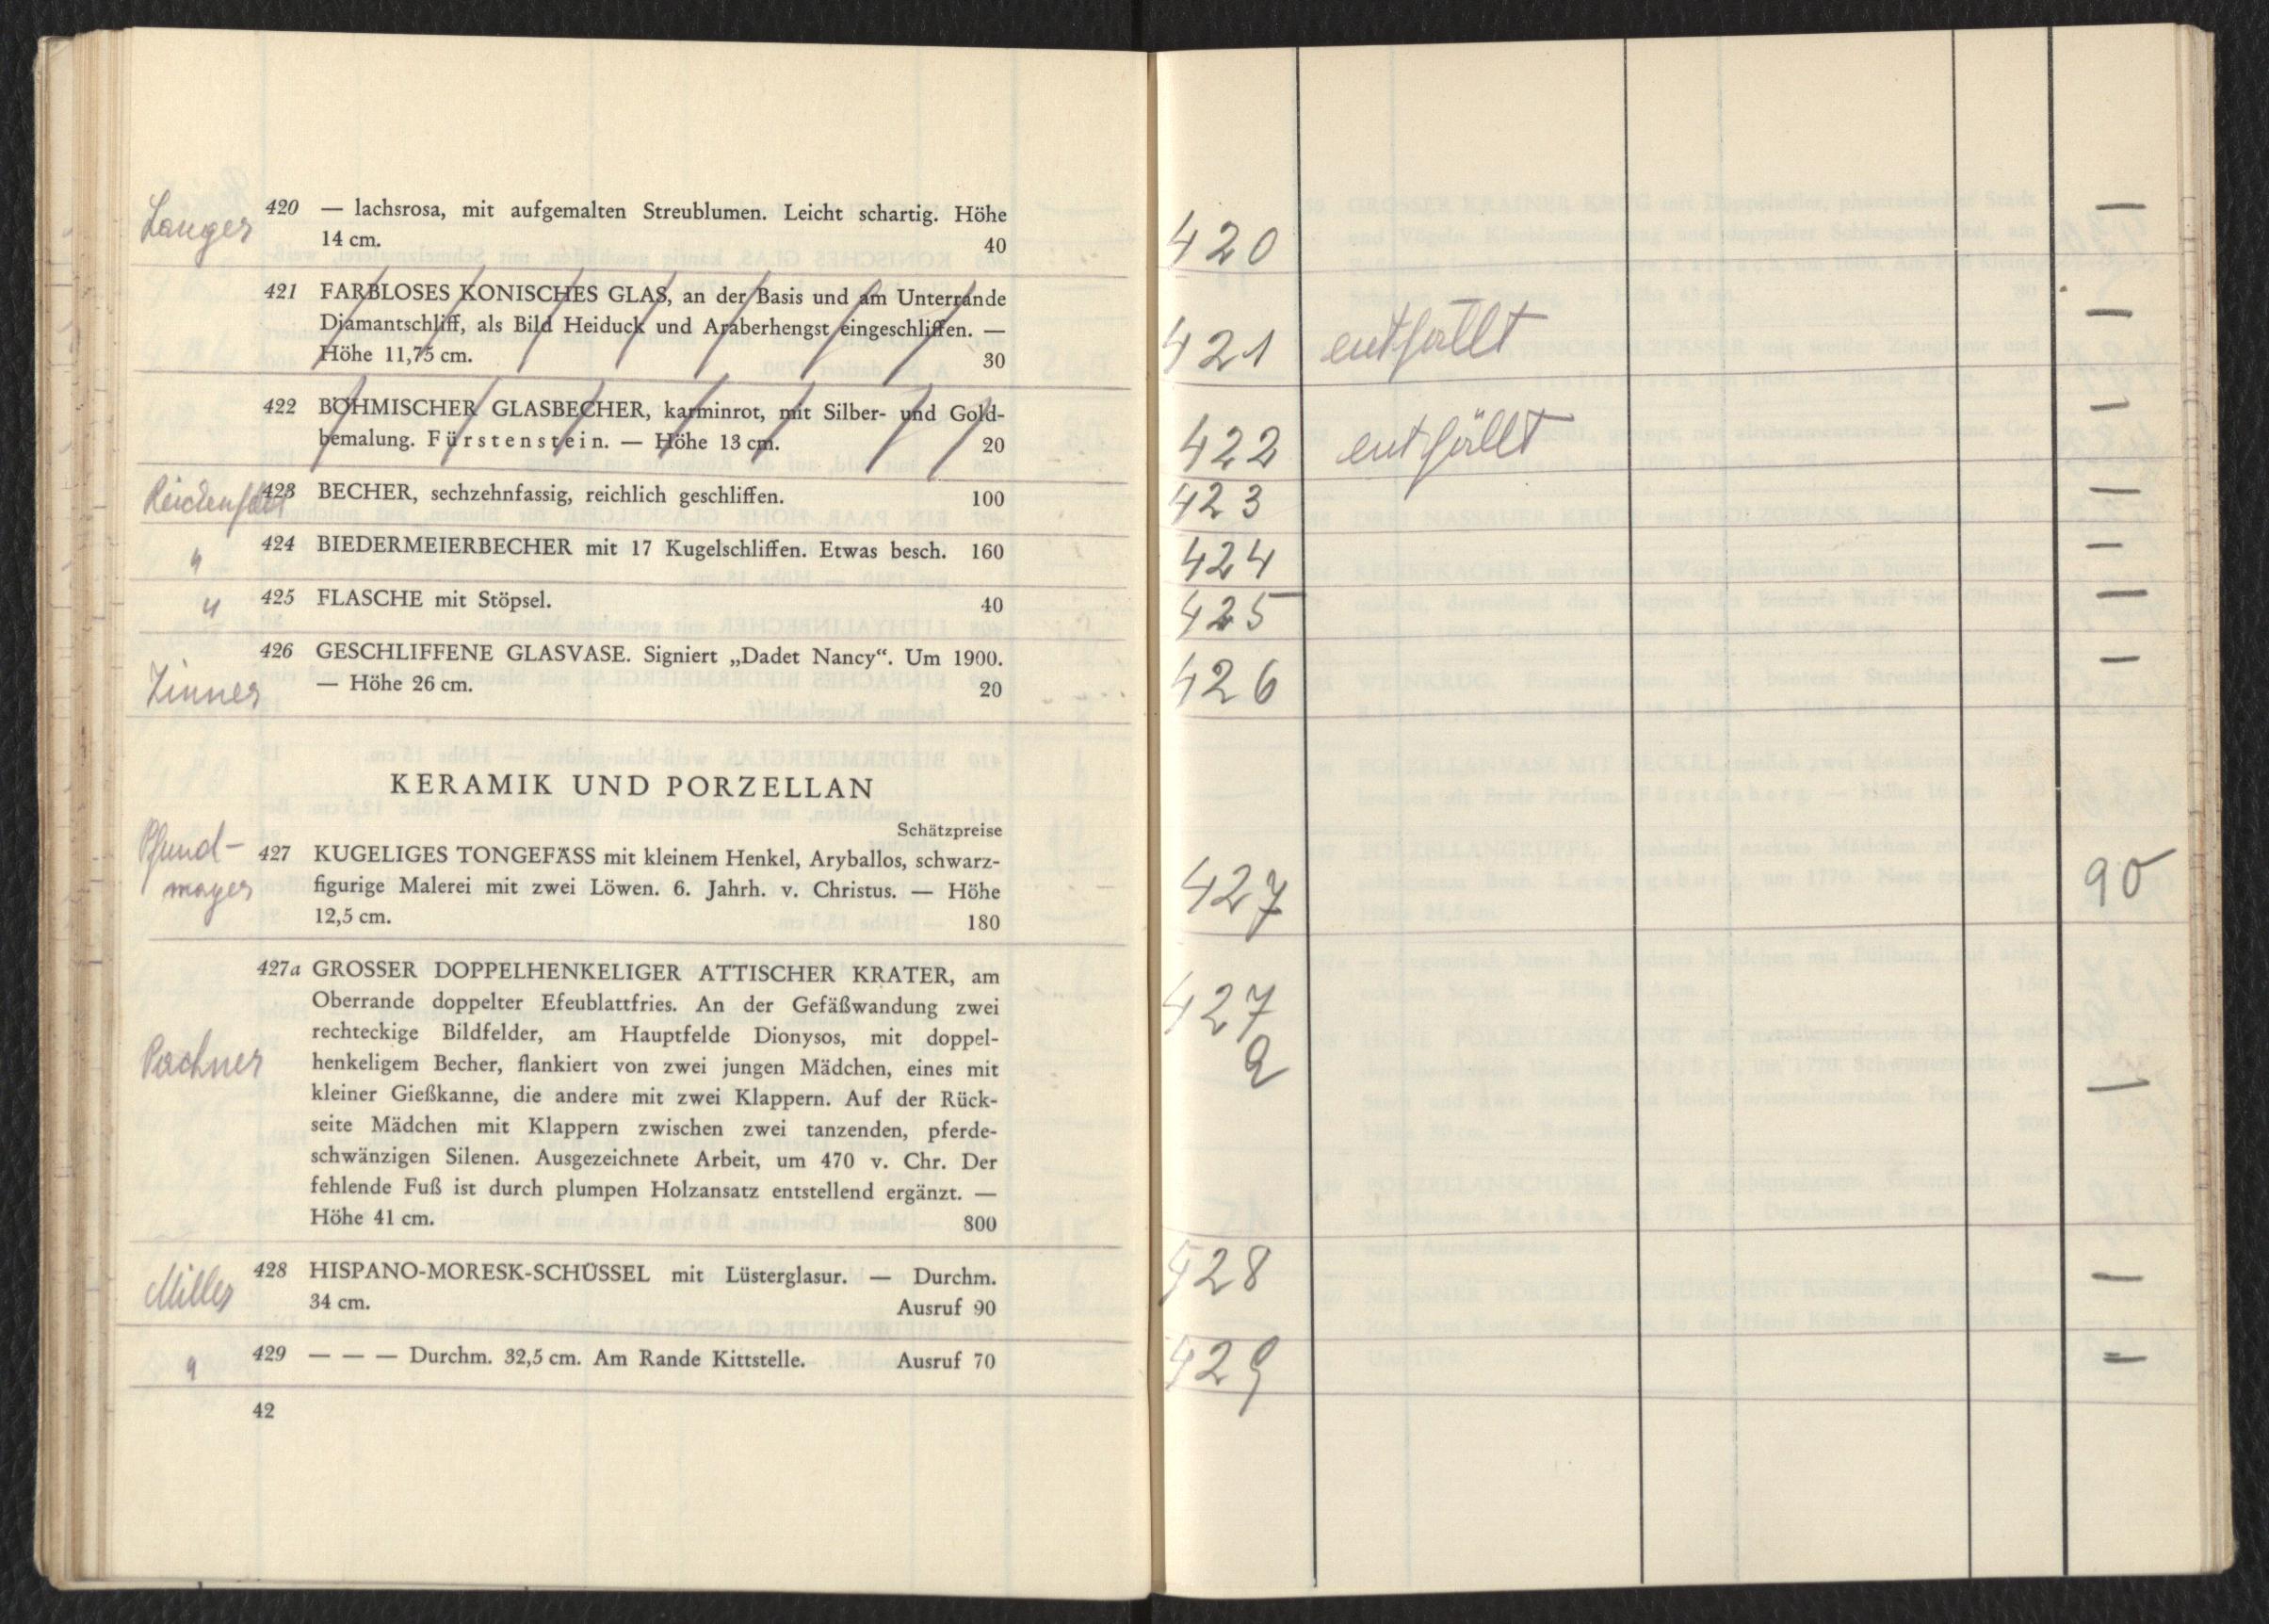 Langer
420 — lachsrosa, mit aufgemalten Streublumen. Leicht schartig. Höhe
14 cm. 40
421 FARBLOSES KONISCHES GLAS, an der Basis und am Unterrande
Diamantschliff, als Bild Heiduck und Araberhengst eingeschliffen. —
Höhe 11,75 cm. 30
422 BÖHMISCHER GLASBECHER, karminrot, mit Silber- und Gold-
bemalung. Fürstenstein. — Höhe 13 cm. 20
423 BECHER, sechzehnfassig, reichlich geschliffen. 100
" 424 BIEDERMEIERBECHER mit 17 Kugelschliffen. Etwas besch. 160
" 425 FLASCHE mit Stöpsel. 40
426 GESCHLIFFENE GLASVASE. Signiert „Dadet Nancy“. Um 1900.
Zinner — Höhe 26 cm. 20
KERAMIK UND PORZELLAN
Schätzpreise
Pfund- 427 KUGELIGES TONGEFÄSS mit kleinem Henkel, Aryballos, schwarz-
mayer figurige Malerei mit zwei Löwen. 6. Jahrh. v. Christus. — Höhe
12,5 cm. 180
427a GROSSER DOPPELHENKELIGER ATTISCHER KRATER, am
Oberrande doppelter Efeublattfries. An der Gefäßwandung zwei
rechteckige Bildfelder, am Hauptfelde Dionysos, mit doppel-
Pachner henkeligem Becher, flankiert von zwei jungen Mädchen, eines mit
kleiner Gießkanne, die andere mit zwei Klappern. Auf der Rück-
seite Mädchen mit Klappern zwischen zwei tanzenden, pferde-
schwänzigen Silenen. Ausgezeichnete Arbeit, um 470 v. Chr. Der
fehlende Fuß ist durch plumpen Holzansatz entstellend ergänzt. —
Höhe 41 cm. 800
428 HISPANO-MORESK-SCHÜSSEL mit Lüsterglasur. — Durchm.
Miller 34 cm. Ausruf 90
" 429 — — — Durchm. 32,5 cm. Am Rande Kittstelle. Ausruf 70
42
420 —
421 entfällt —
422 entfällt —
423 —
424 —
425 —
426 —
427 90
427
a —
428 —
429 —